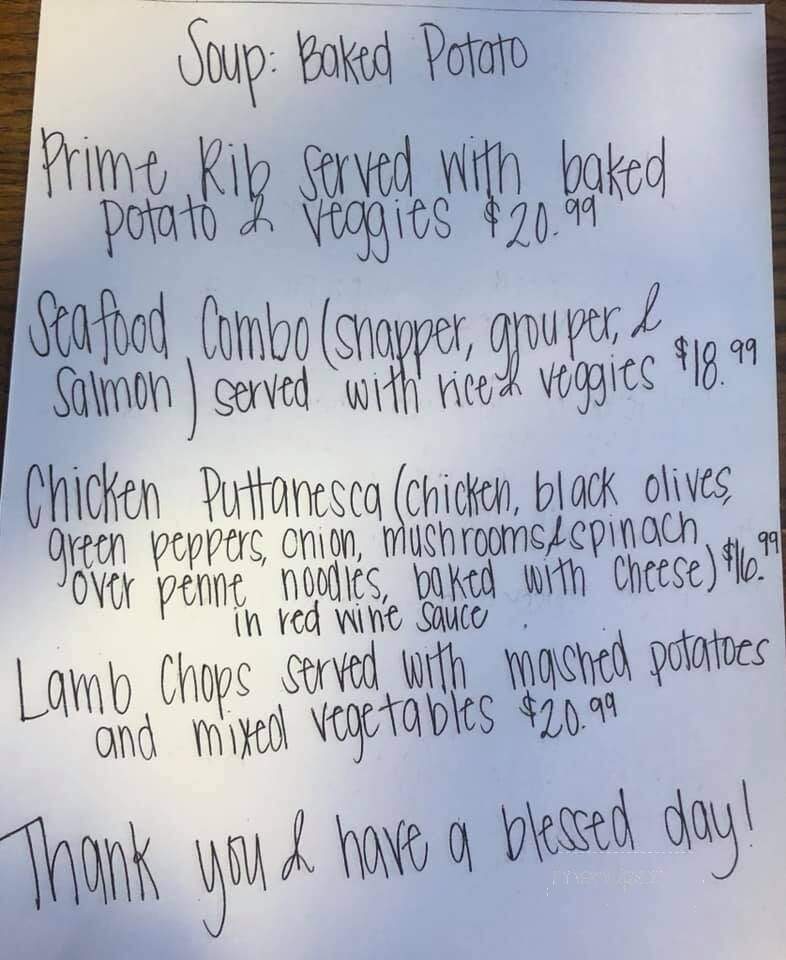 Soup: Baked Potato
Prime Rib served with baked
potato & veggies $20.99
Seafood Combo (snapper, grouper, &
Salmon) served with rice & veggies $18.99
Chicken Puttanesca (chicken, black olives,
green peppers, onion, mushrooms & spinach
over penne noodles, baked with cheese) $16.99
in red wine sauce
Lamb Chops served with mashed potatoes
and mixed vegetables $20.99
Thank you & have a blessed day!